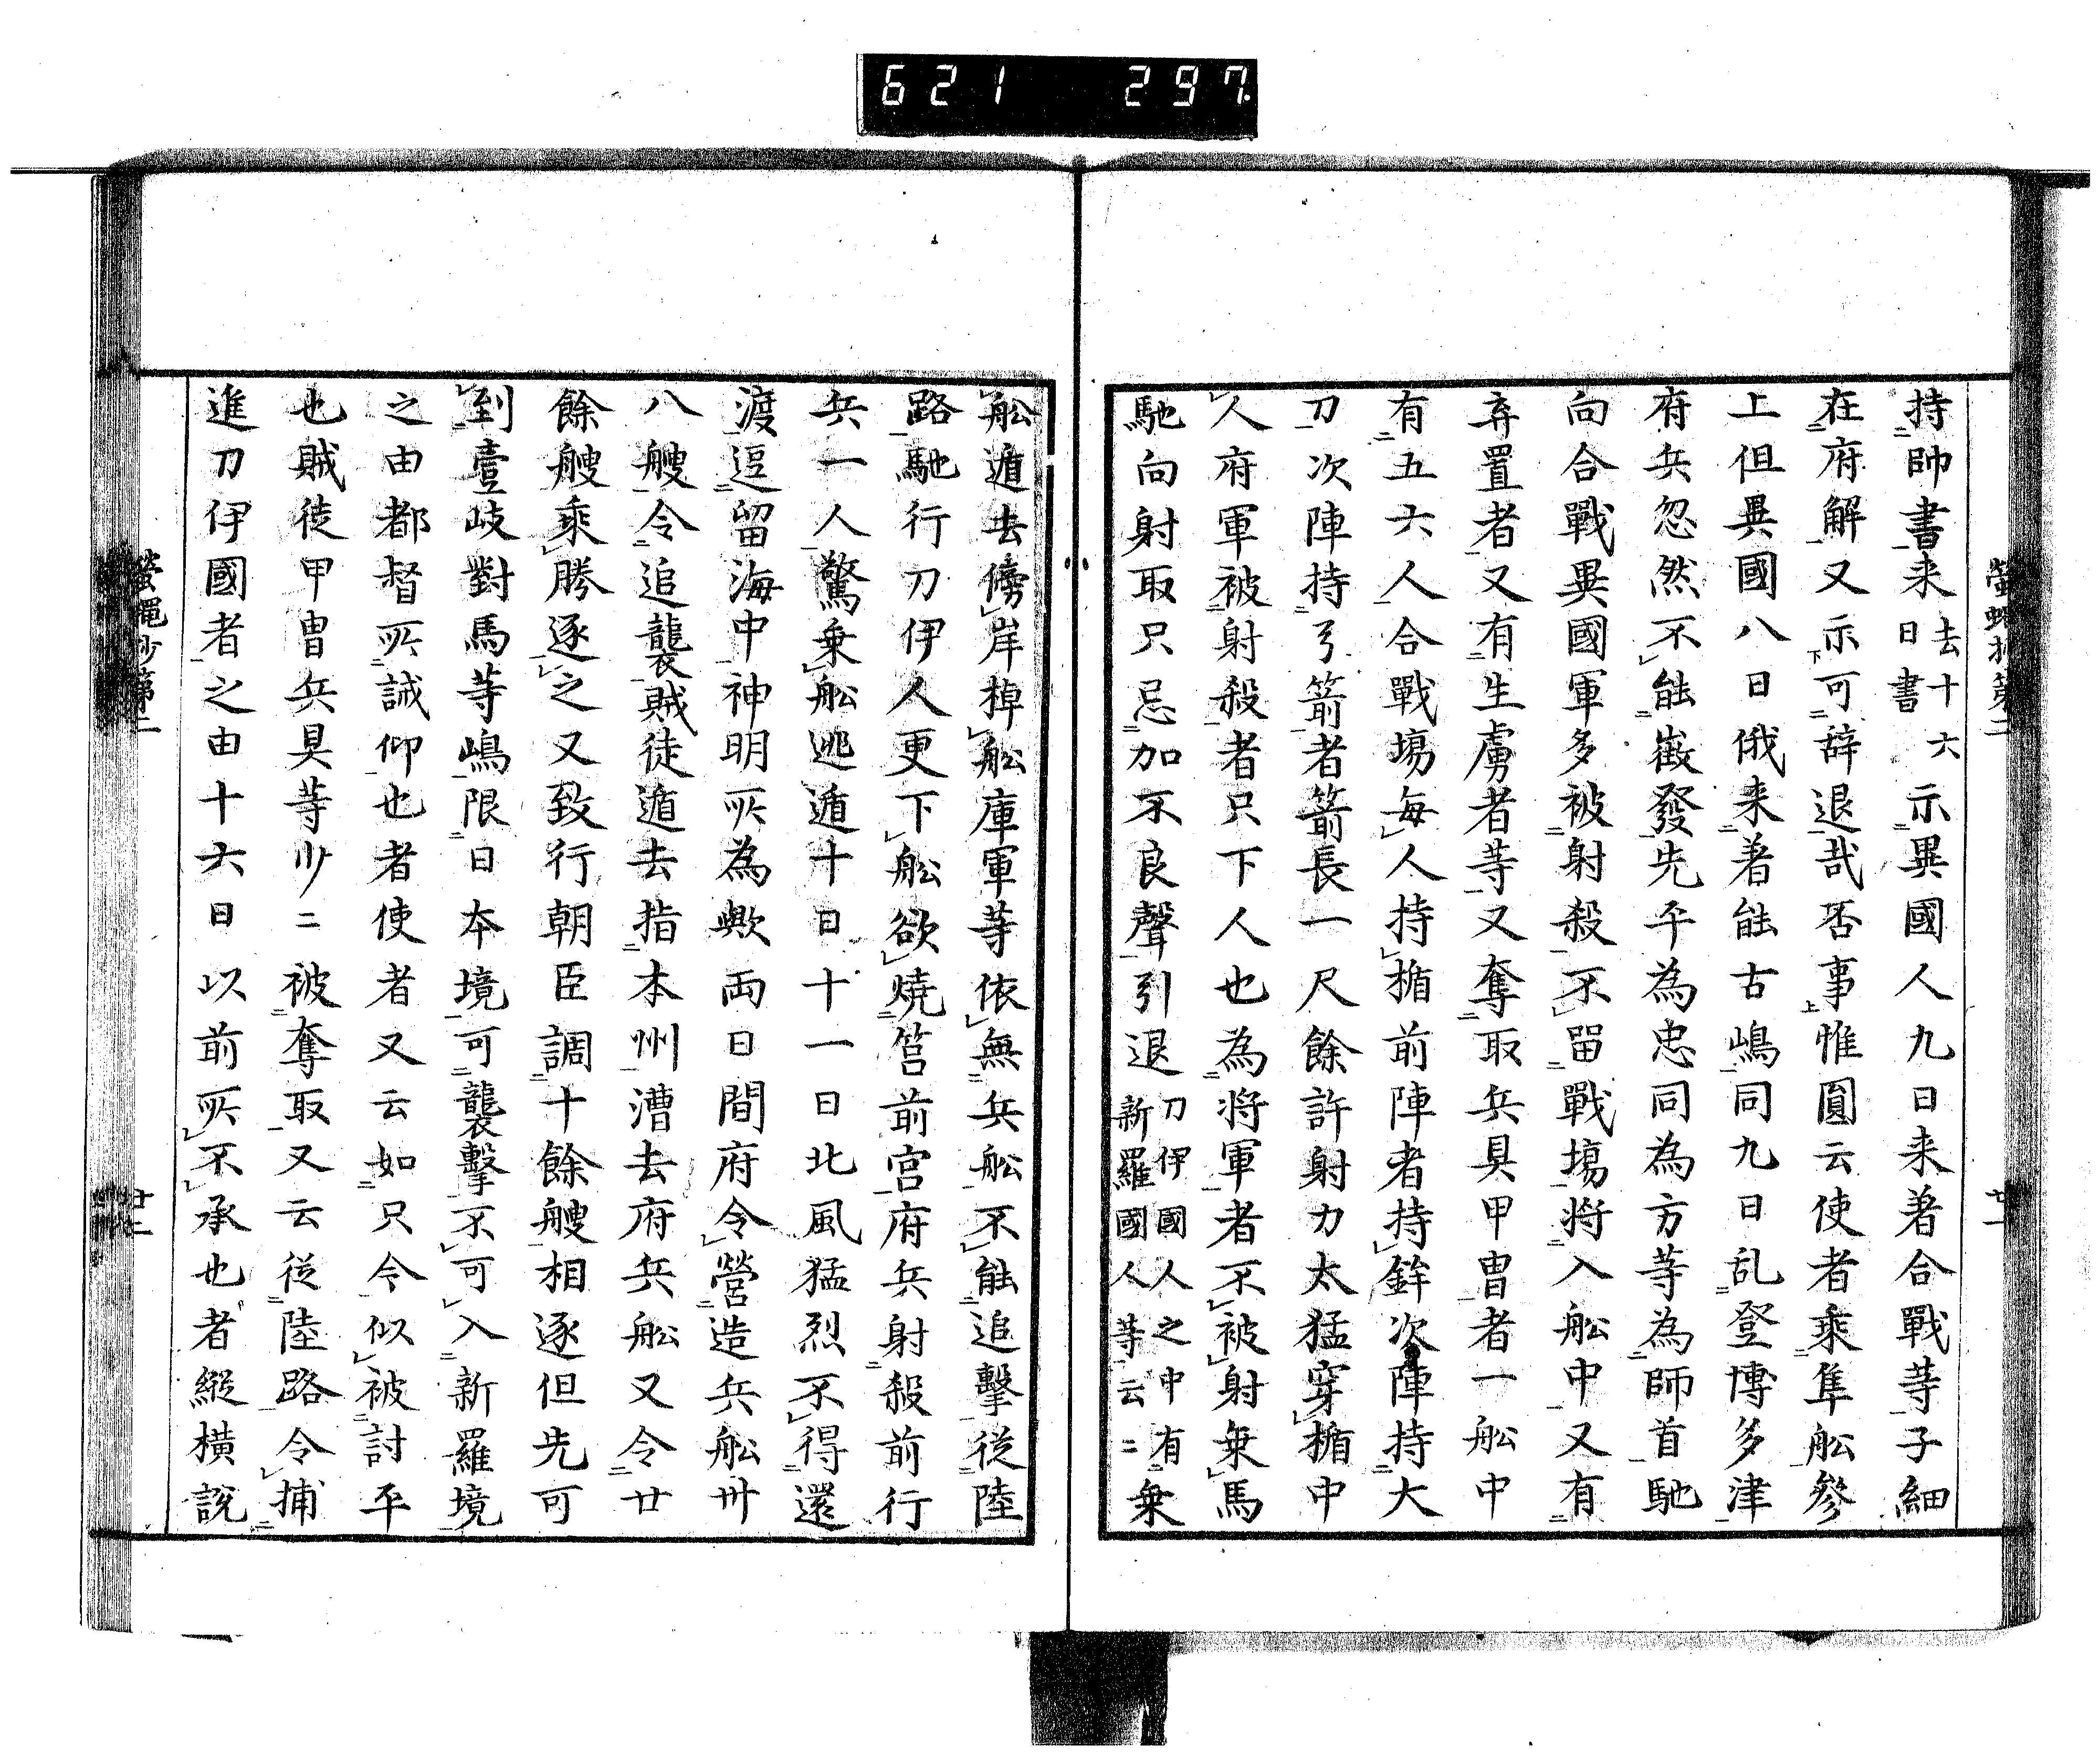 621 297
螢蠅抄第二 廿一
持帥書来去十六日書示異國人九日来著合戰等子細
在府解又示可辞退哉否事惟圓云使者乘隼舩參
上但異國八日俄来著能古嶋同九日乱登博多津
府兵忽然不能徴發先平為忠同為方等為師首馳
向合戰異國軍多被射殺不留戰場将入舩中又有
弃置者又有生虜者等又奪取兵具甲冑者一舩中
有五六人合戰場毎人持楯前陣者持鉾次陣持大
刀次陣持弓箭者箭長一尺餘許射力太猛穿楯中
人府軍被射殺者只下人也為将軍者不被射乗馬
馳向射取只忌加不良聲引退刀伊國人之中有新羅國人等云〻乗
舩遁去傍岸棹舩庫軍等依無兵舩不能追擊従陸
路馳行刀伊人更下舩欲燒筥前宮府兵射殺前行
兵一人驚乗舩逃遁十日十一日北風猛烈不得還
渡逗留海中神明所為歟両日間府令營造兵舩卅
八艘令追襲賊徒遁去指本州漕去府兵舩又令廿
餘艘乘勝逐之又致行朝臣調十餘艘相逐但先可
到壹岐對馬等嶋限日本境可襲擊不可入新羅境
之由都督所誡仰也者使者又云如只今似被討平
也賊徒甲冑兵具等少〻被奪取又云従陸路令捕
進刀伊國者之由十六日以前所不承也者縦横説
螢蠅抄第二 廿二